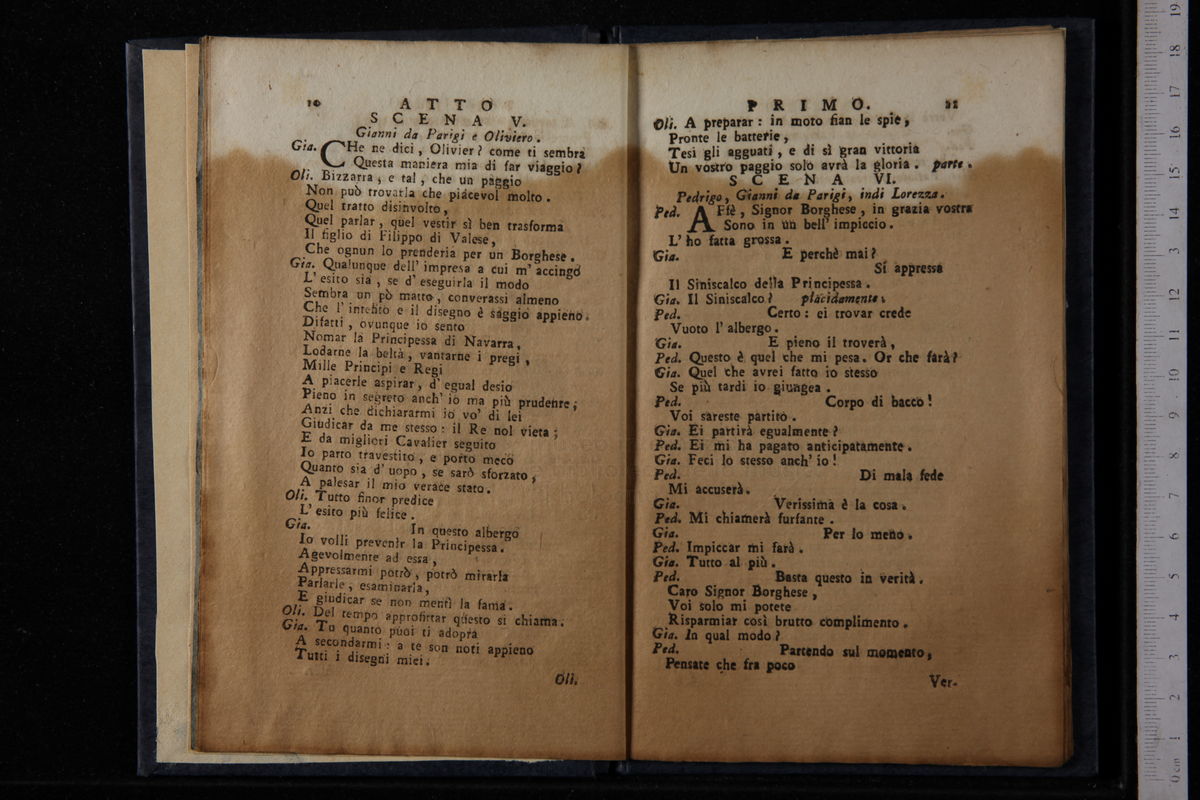 10 ATTO
SCENA V.
Gianni da Parigi e Oliviero.
Gia. CHe ne dici, Olivier? come ti sembra
Questa maniera mia di far viaggio?
Oli. Bizzarra, e tal, che un paggio
Non può trovarla che piacevol molto.
Quel tratto disinvolto,
Quel parlar, quel vestir sì ben trasforma
Il figlio di Filippo di Valese,
Che ognun lo prenderia per un Borghese.
Gia. Qualunque dell' impresa a cui m' accingo
L' esito sia, se d' eseguirla il modo
Sembra un pò matto, converassi almeno
Che l' intento e il disegno è saggio appieno.
Difatti, ovunque io sento
Nomar la Principessa di Navarra,
Lodarne la beltà, vantarne i pregi,
Mille Principi e Regi
A piacerle aspirar, d' egual desio
Pieno in segreto anch' io ma più prudente;
Anzi che dichiararmi io vo' di lei
Giudicar da me stesso: il Re nol vieta;
E da migliori Cavalier seguito
Io parto travestito, e porto meco
Quanto sia d' uopo, se sarò sforzato,
A palesar il mio verace stato.
Oli. Tutto finor predice
L' esito più felice.
Gia. In questo albergo
Io volli prevenir la Principessa.
Agevolmente ad essa,
Appressarmi potrò, potrò mirarla
Parlarle, esaminarla,
E giudicar se non mentì la fama.
Oli. Del tempo approfittar questo si chiama.
Gia. Tu quanto puoi ti adopra
A secondarmi: a te son noti appieno
Tutti i disegni miei.
Oli.
PRIMO. 11
Oli. A preparar: in moto fian le spie,
Pronte le batterie,
Tesi gli agguati, e di sì gran vittoria
Un vostro paggio solo avrà la gloria. parte.
SCENA VI.
Pedrigo, Gianni da Parigi, indi Lorezza.
Ped. AFfè, Signor Borghese, in grazia vostra
Sono in un bell' impiccio.
L' ho fatta grossa.
Gia. E perchè mai?
Si appressa
Il Siniscalco della Principessa.
Gia. Il Siniscalco? placidamente.
Ped. Certo: ei trovar crede
Vuoto l' albergo.
Gia. E pieno il troverà,
Ped. Questo è quel che mi pesa. Or che farà?
Gia. Quel che avrei fatto io stesso
Se più tardi io giungea.
Ped. Corpo di bacco!
Voi sareste partito.
Gia. Ei partirà egualmente?
Ped. Ei mi ha pagato anticipatamente.
Gia. Feci lo stesso anch' io!
Ped. Di mala fede
Mi accuserà.
Gia. Verissima è la cosa.
Ped. Mi chiamerà furfante.
Gia. Per lo meno.
Ped. Impiccar mi farà.
Gia. Tutto al più.
Ped. Basta questo in verità.
Caro Signor Borghese,
Voi solo mi potete
Risparmiar così brutto complimento.
Gia. In qual modo?
Ped. Partendo sul momento,
Pensate che fra poco
Ver-
0 cm 1 2 3 4 5 6 7 8 9 10 11 12 13 14 15 16 17 18 19